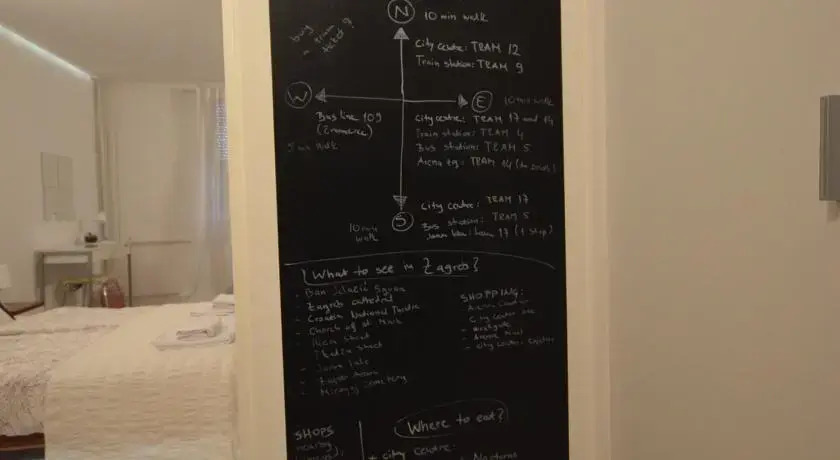 buy
tram
ticket?
N 10 min walk
City centre: TRAM 12
Train station: TRAM 9
W
E 10 min walk
Bus line 109
(Črnomerec)
min walk
City centre: TRAM 17 and 14
Train station: TRAM 4
Bus station: TRAM 5
Arena
TRAM 14
S
10 min
walk
City centre: TRAM 17
Bus station: TRAM 5
17 (1 stop)
What to see in Zagreb?
- Ban Jelačić Square
- Zagreb cathedral
- Croatia National Theatre
- Church of St. Mark
- Ilica street
- Tkalča street
- Jarun lake
- Zagreb Arena
- Mirogoj cemetery
SHOPPING:
- Arena Center
- City center one
- Westgate
- Avenue Mall
- City center
SHOPS
nearby
Where to eat?
+ city centre:
- Nocturno